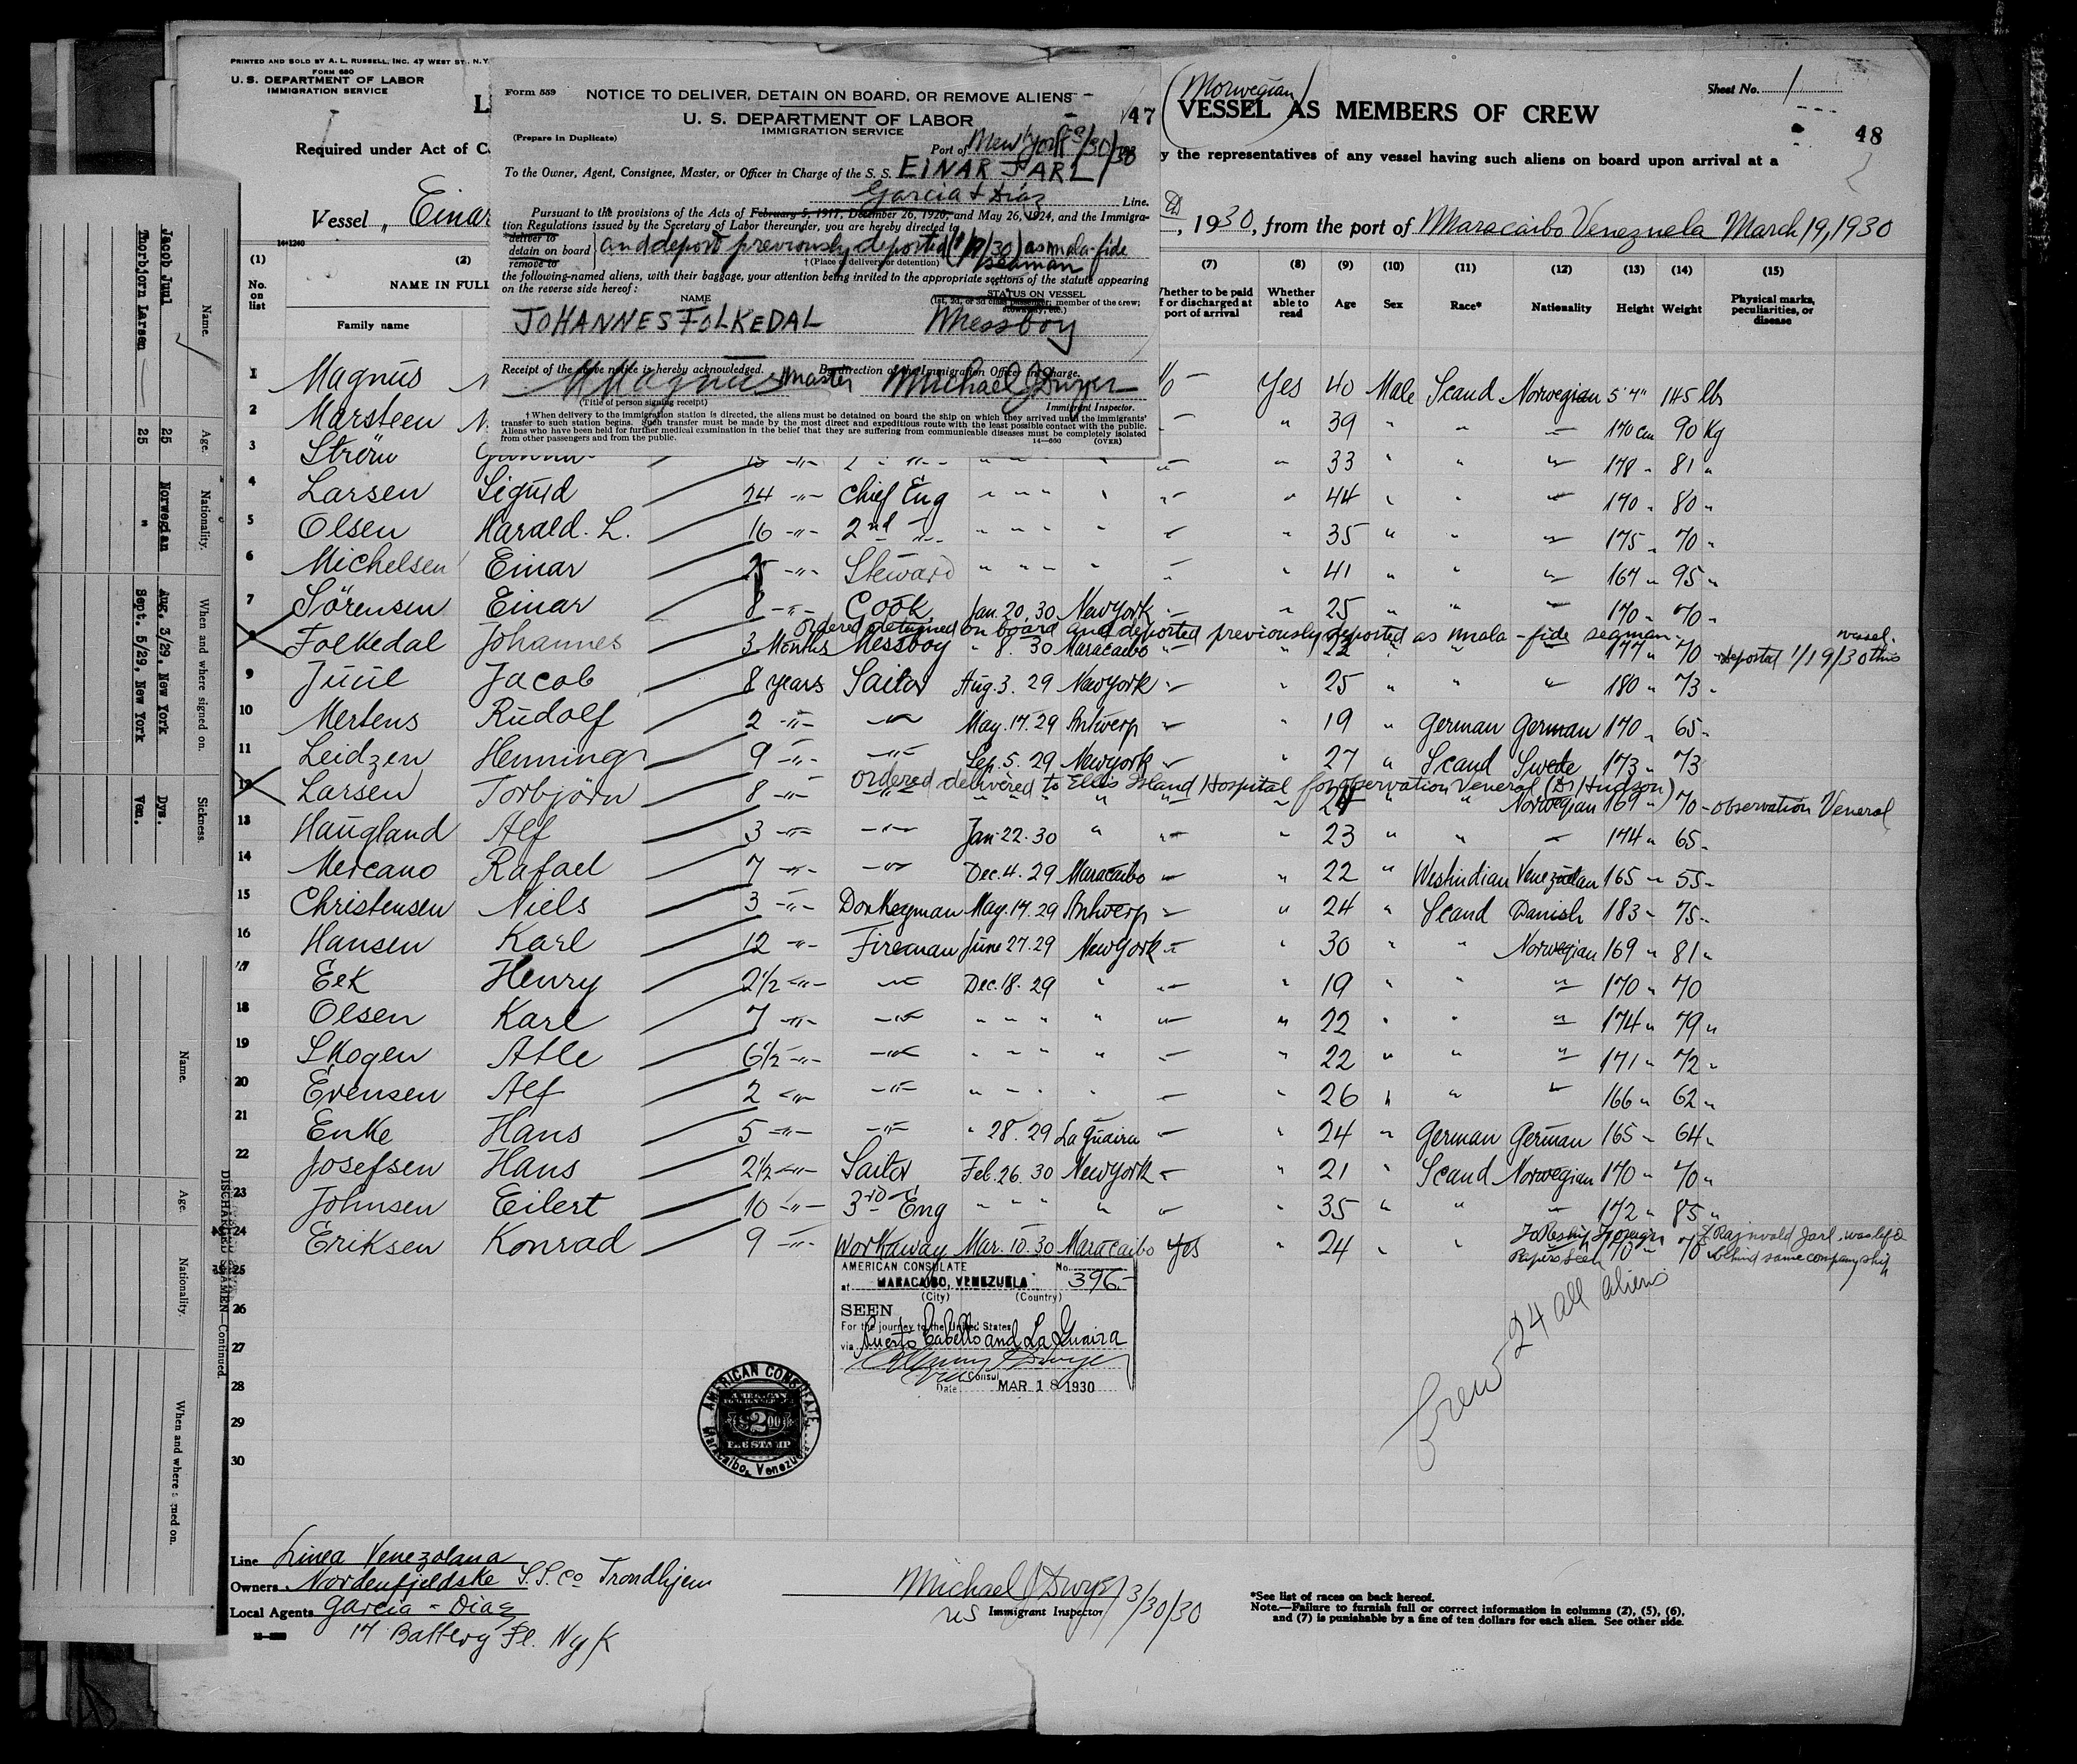 PRINTED AND SOLD BY A. L. RUSSELL, INC. 47 WEST ST., N.Y.
FORM 680
U. S. DEPARTMENT OF LABOR
IMMIGRATION SERVICE
L
Required under Act of C
Vessel „ Einar
14-1240
Form 559
NOTICE TO DELIVER, DETAIN ON BOARD, OR REMOVE ALIENS
47
U. S. DEPARTMENT OF LABOR
IMMIGRATION SERVICE
(Prepare in Duplicate)
Port of New York
To the Owner, Agent, Consignee, Master, or Officer in Charge of the S. S. EINAR JARL
Garcia & Diaz Line.
Pursuant to the provisions of the Acts of February 5, 1917, December 26, 1920, and May 26, 1924, and the Immigra-
tion Regulations issued by the Secretary of Labor thereunder, you are hereby directed to
deliver to
detain on board
remove to
and deport previously deported (1/19/30) as mala-fide
seaman
†(Place of delivery or detention)
the following-named aliens, with their baggage, your attention being invited to the appropriate sections of the statute appearing
on the reverse side hereof:
NAME
STATUS ON VESSEL
(1st, 2d, or 3d class passenger; member of the crew;
stowaway, etc.)
JOHANNES FOLKEDAL Messboy
Receipt of the above notice is hereby acknowledged. By direction of the Immigration Officer in Charge.
Magnus Master Michael J Dwyer
(Title of person signing receipt) Immigrant Inspector.
†When delivery to the immigration station is directed, the aliens must be detained on board the ship on which they arrived until the immigrants'
transfer to such station begins. Such transfer must be made by the most direct and expeditious route with the least possible contact with the public.
Aliens who have been held for further medical examination in the belief that they are suffering from communicable diseases must be completely isolated
from other passengers and from the public.
14-660 (OVER)
(Norwegian)
VESSEL AS MEMBERS OF CREW
Sheet No. 1
48
y the representatives of any vessel having such aliens on board upon arrival at a
, 1930, from the port of Maracaibo Venezuela March 19, 1930
(1) (2) (7) (8) (9) (10) (11) (12) (13) (14) (15)
No. on list
NAME IN FULL
Family name
Whether to be paid off or discharged at port of arrival
Whether able to read
Age
Sex
Race*
Nationality
Height
Weight
Physical marks, peculiarities, or disease
1 Magnus No - Yes 40 Male Scand Norwegian 5'7" 145 lbs
2 Marsteen - " 39 " " -"- 170 cm 90 Kg
3 Strøm 15 -"- 2 " -"- " 33 " " -"- 178 " 81 "
4 Larsen Sigurd 24 -"- Chief Eng " " " " -"- " 44 " " -"- 170 " 80 "
5 Olsen Harald. L. 16 -"- 2nd -"- " " " " -"- " 35 " " -"- 175 " 70 "
6 Michelsen Einar 25 -"- Steward " " " " -"- " 41 " " -"- 167 " 95 "
7 Sörensen Einar 8 -"- Cook Jan. 20. 30 New York -"- " 25 " " -"- 170 " 70 "
ordered detained on board and deported previously deported as mala-fide seaman. vessel.
8 Folkedal Johannes 3 Months Messboy " 8. 30 Maracaibo -"- " 22 " " -"- 177 " 70 - deported 1/19/30 this
9 Juul Jacob 8 years Sailor Aug. 3. 29 New York -"- " 25 " " -"- 180 " 73 "
10 Mertens Rudolf 2 -"- -"- May. 17. 29 Antwerp -"- " 19 " German German 170 " 65 "
11 Leidzen Henning 9 -"- -"- Sep. 5. 29 New York -"- " 27 " Scand Swede 173 " 73
ordered delivered to Ellis Island Hospital for observation Veneral (Dr Hudson)
12 Larsen Torbjörn 8 -"- -"- " " " " -"- " " " Norwegian 169 " 70 - observation Veneral
13 Haugland Alf 3 -"- -"- Jan 22. 30 " -"- " 23 " " -"- 174 " 65 "
14 Mercano Rafael 7 -"- -"- Dec. 4. 29 Maracaibo -"- " 22 " Westindian Venezuelan 165 " 55 "
15 Christensen Niels 3 -"- Donkeyman May. 17. 29 Antwerp -"- " 24 " Scand Danish 183 " 75 "
16 Hansen Karl 12 -"- Fireman June 27. 29 New York -"- " 30 " " Norwegian 169 " 81 "
17 Eek Henry 2 1/2 -"- -"- Dec. 18. 29 " -"- " 19 " " -"- 170 " 70
18 Olsen Karl 7 -"- -"- " " " " -"- " 22 " " -"- 174 " 79 "
19 Skogen Atle 6 1/2 -"- -"- " " " " -"- " 22 " " -"- 171 " 72 "
20 Evensen Alf 2 -"- -"- " " " " -"- " 26 " " -"- 166 " 62 "
21 Enke Hans 5 -"- -"- " 28. 29 La Guaira -"- " 24 " German German 165 " 64 "
22 Josefsen Hans 2 1/2 -"- Sailor Feb. 26. 30 New York -"- " 21 " Scand Norwegian 170 " 70 "
23 Johnsen Eilert 10 -"- 3rd Eng " " " " -"- " 35 " " -"- 172 " 85 "
24 Eriksen Konrad 9 -"- Workaway Mar. 10. 30 Maracaibo Yes " 24 " " To Reship Foreign 170 " 70 Ragnvald Jarl. was left
Papers seen behind same company ship
25
26
27
28
29
30
AMERICAN CONSULATE No. 396
at MARACAIBO, VENEZUELA
(City) (Country)
SEEN
For the journey to the United States
via Puerto Cabello and La Guaira
Vice Consul
Date MAR 18 1930
AMERICAN CONSULATE
AMERICAN
FOREIGN SERVICE
$2.00
FEE STAMP
Maracaibo, Venezuela
Crew 24 all aliens
Line Linea Venezolana
Owners Nordenfjeldske S.S. Co Trondhjem
Local Agents Garcia - Diaz
17 Battery Pl. N Y K
Michael J Dwyer 3/30/30
US Immigrant Inspector
*See list of races on back hereof.
Note.—Failure to furnish full or correct information in columns (2), (5), (6),
and (7) is punishable by a fine of ten dollars for each alien. See other side.
Name. Age. Nationality. When and where signed on. Sickness.
Jacob Juul 25 Norwegian Aug. 3/29, New York Dys.
Thorbjorn Larsen 25 " Sept. 5/29, New York Ven.
DISCHARGED SEAMEN—Continued.
Name. Age. Nationality. When and where signed on.